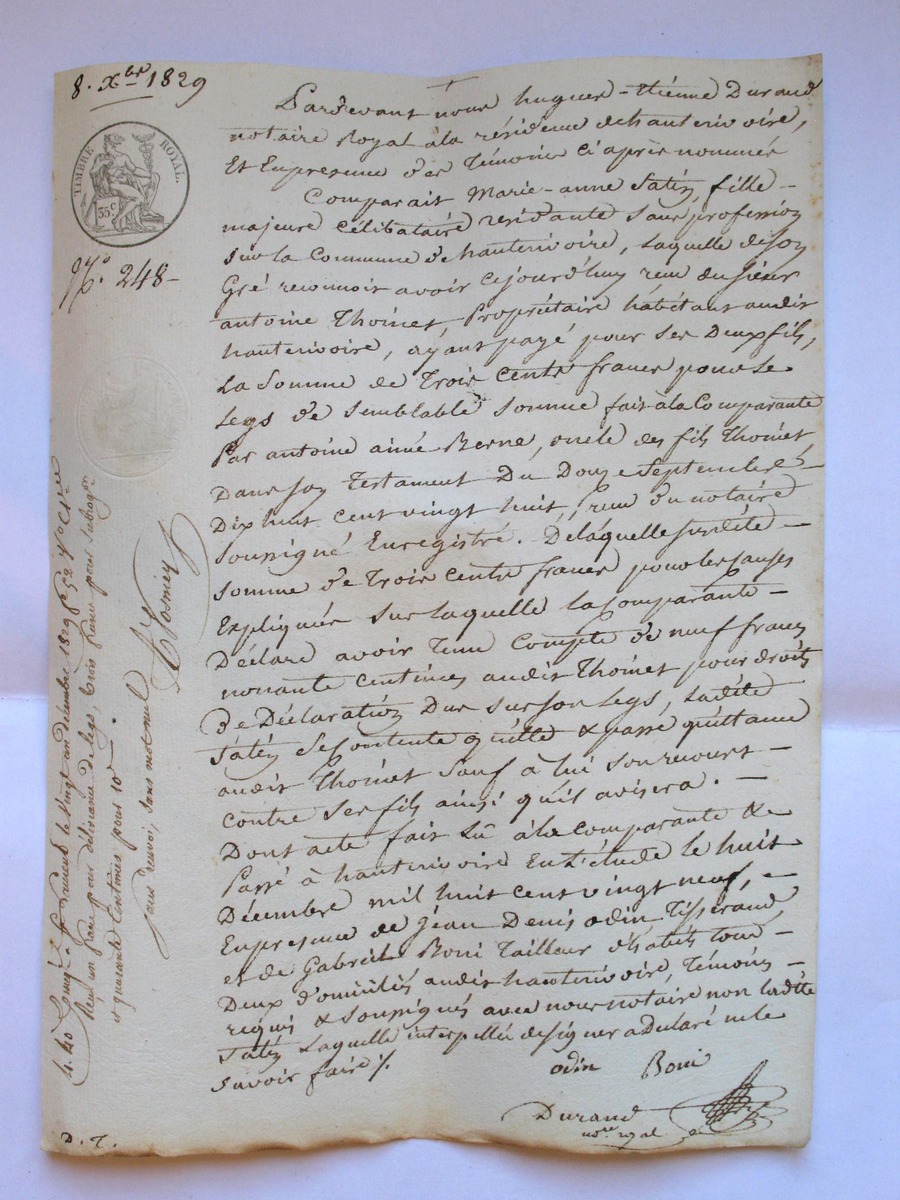 8. Xbre 1829
TIMBRE ROYAL.
35c
No. 248 -
Pardevant nous hugues-Etiénne Durand
notaire Royal à la résidence de hauterivoire,
Et En presence des Témoins Ci après nommés
Comparait Marie-anne Satéz, fille -
majeure Célibataire residante Sans profession
Sur la Commune de hauterivoire, Laquelle de Son
Gré reconnoit avoir Cejourd'huy reçu du Sieur
antoine Thoinet, Propriétaire habitant audit
hauterivoire, ayant payé pour Ses Deux fils,
La Somme de Trois Cents francs pour Le
Legs de Semblable Somme fait à la Comparante
Par antoine aimé Berne, oncle des fils Thoinet,
Dans Son Testament Du Douze Septembre
Dix huit Cent vingt huit, reçu du notaire
Soussigné Enregistré. De laquelle Susdite -
Somme de Trois Cents francs pour les causes
Expliquées Sur laquelle la Comparante -
Déclare avoir Tenu Compte de neuf francs
nonante Centimes audit Thoinet pour droits
de Déclaration Dus sur son Legs, Ladite
Satéz Se Contente quitte & passe quittance
audit Thoinet Sauf à lui Son recours -
contre Ses fils ainsi qu'il avisera. -
Dont acte fait Lû à la Comparante &
Passé à hauterivoire En L'étude le huit
Décembre mil huit Cent vingt neuf, -
En presence de Jéan Denis odin Tisserand
et de Gabriel Boni Tailleur d'habits tous -
Deux domiciliés audit hauterivoire, Témoins -
requis & Soussignés avec nous notaire non ladite
Satéz Laquelle interpellée de signer a declaré ne le
Savoir faire ./.
odin Boni
Durand
nore royal
D. T.
le vingt un decembre 1829 fo 52
Reçu un franc pour delivrance de legs, trois francs pour
et quarante Centimes pour 10e
Sans renvoi, Sans mot nul